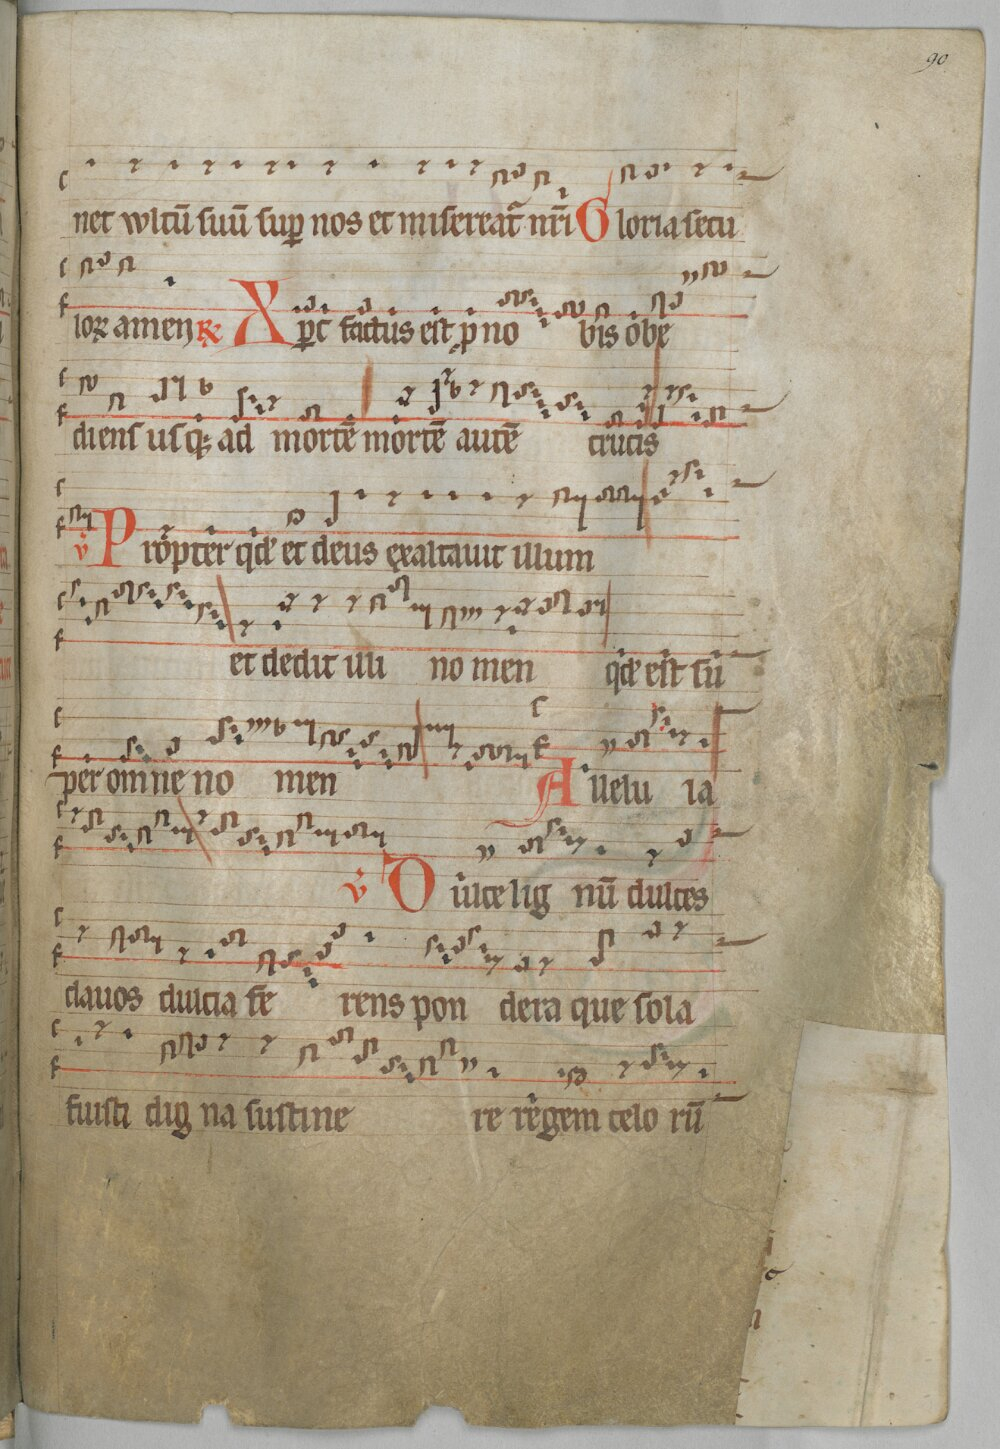 90
net vvltū suū sup nos et misereat nr̄i Gloria secu
lorꝝ amen ℞ Xp̄c factus est p no bis obe
diens usqꝫ ad mortē mortē autē crucis
℣ Propter qd et deus exaltauit illum
et dedit illi no men qd est sū
per omne no men Allelu ia
℣ Dulce lig nū dulces
clauos dulcia fe rens pon dera que sola
fuisti dig na sustine re regem celo rū